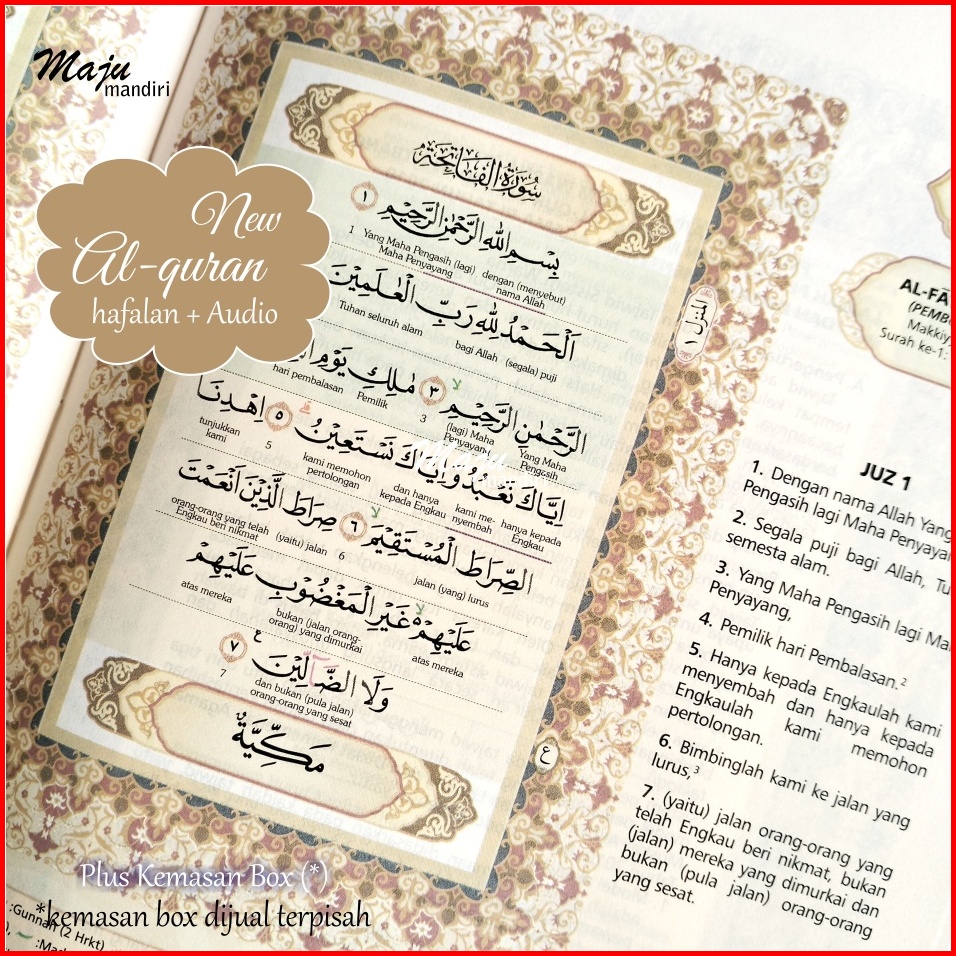 Maju
mandiri
New
Al-quran
hafalan + Audio
سُورَةُ الْفَاتِحَةِ
بِسْمِ اللّٰهِ الرَّحْمٰنِ الرَّحِيْمِ ١
dengan (menyebut) nama Allah
Yang Maha Pengasih (lagi) Maha Penyayang
1
اَلْحَمْدُ لِلّٰهِ رَبِّ الْعٰلَمِيْنَ
(segala) puji
bagi Allah
Tuhan seluruh alam
الرَّحْمٰنِ الرَّحِيْمِ ٣ مٰلِكِ يَوْمِ
Yang Maha Pengasih
(lagi) Maha Penyayang
3
Pemilik
hari pembalasan
اِيَّاكَ نَعْبُدُ وَاِيَّاكَ نَسْتَعِيْنُ ٥ اِهْدِنَا
hanya kepada Engkau
kami menyembah
dan hanya kepada Engkau
kami memohon pertolongan
5
tunjukkan kami
الصِّرَاطَ الْمُسْتَقِيْمَ ٦ صِرَاطَ الَّذِيْنَ اَنْعَمْتَ
jalan (yang) lurus
6
(yaitu) jalan
orang-orang yang telah Engkau beri nikmat
عَلَيْهِمْ غَيْرِ الْمَغْضُوْبِ عَلَيْهِمْ
atas mereka
bukan (jalan orang-orang) yang dimurkai
atas mereka
وَلَا الضَّاۤلِّيْنَ ٧
ع
dan bukan (pula jalan) orang-orang yang sesat
7
مَكِّيَّةٌ
المنزل ١
ع
AL-FĀ
(PEMB
Makkiy
Surah ke-1:
JUZ 1
1. Dengan nama Allah Yang
Pengasih lagi Maha Penyaya
2. Segala puji bagi Allah, Tu
semesta alam.
3. Yang Maha Pengasih lagi Ma
Penyayang,
4. Pemilik hari Pembalasan.2
5. Hanya kepada Engkaulah kami
menyembah dan hanya kepada
Engkaulah kami memohon
pertolongan.
6. Bimbinglah kami ke jalan yang
lurus,3
7. (yaitu) jalan orang-orang yang
telah Engkau beri nikmat, bukan
(jalan) mereka yang dimurkai dan
bukan (pula jalan) orang-orang
yang sesat.
Plus Kemasan Box (*)
*kemasan box dijual terpisah
:Gunnah (2 Hrkt)